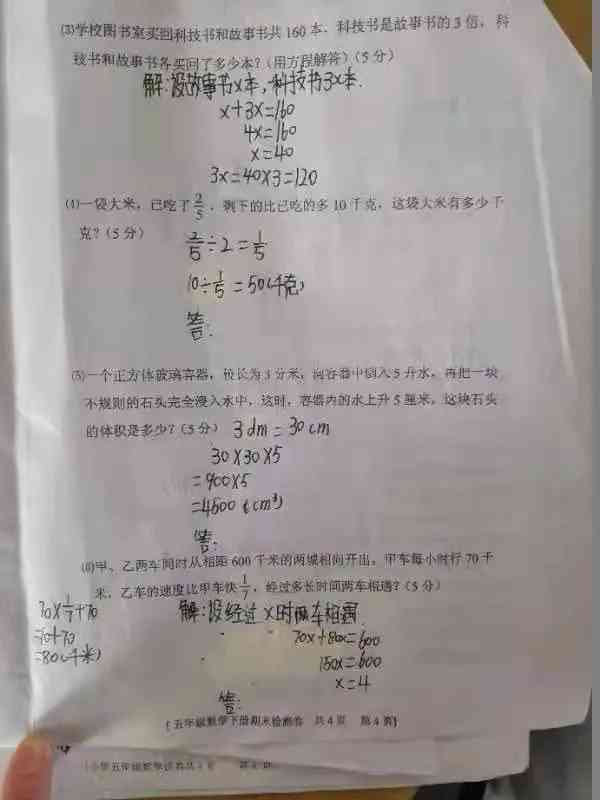 (3)学校图书室买回科技书和故事书共160本，科技书是故事书的3倍，科
技书和故事书各买回了多少本？(用方程解答)(5分)
解:设故事书x本,科技书3x本.
x+3x=160
4x=160
x=40
3x=40×3=120
(4)一袋大米，已吃了2/5，剩下的比已吃的多10千克，这袋大米有多少千
克？(5分)
2/5÷2=1/5
10÷1/5=50(千克)
答:
(5)一个正方体玻璃容器，棱长为3分米，向容器中倒入5升水，再把一块
不规则的石头完全浸入水中，这时，容器内的水上升5厘米，这块石头
的体积是多少？(5分) 3dm=30cm
30×30×5
=900×5
=4500(cm³)
答:
(6)甲、乙两车同时从相距600千米的两城相向开出，甲车每小时行70千
米，乙车的速度比甲车快1/7，经过多长时间两车相遇？(5分)
70×1/7+70
=10+70
=80(千米)
解:设经过x时两车相遇.
70x+80x=600
150x=600
x=4
答:
(五年级数学下册期末检测卷 共4页 第4页)